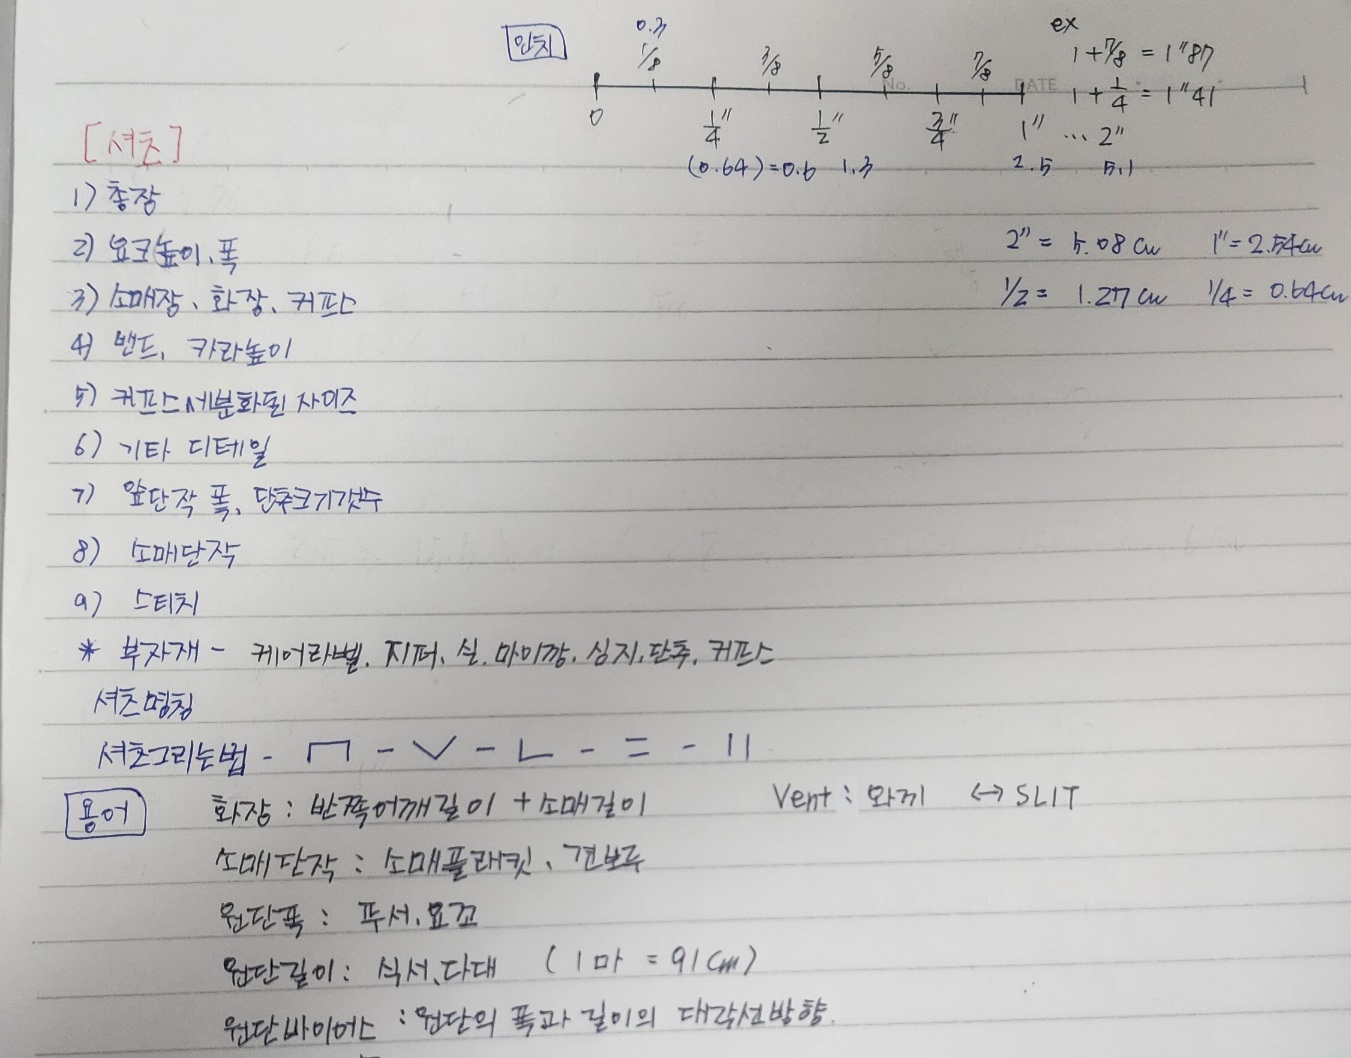 인치
0.3
1/8 3/8 5/8 7/8
0 1/4" 1/2" 3/4" 1" ... 2"
(0.64)=0.6 1.3 2.5 5.1
ex
1+7/8 = 1"87
1+1/4 = 1"41
No. DATE
2" = 5.08cm 1"=2.54cm
1/2 = 1.27cm 1/4 = 0.64cm
[셔츠]
1) 총장
2) 요크높이, 폭
3) 소매장, 화장, 커프스
4) 밴드, 카라높이
5) 커프스 세분화된 사이즈
6) 기타 디테일
7) 앞단작 폭, 단추크기갯수
8) 소매단작
9) 스티치
* 부자재 - 케어라벨, 지퍼, 실, 마이깡, 심지, 단추, 커프스
셔츠명칭
셔츠그리는법 -
용어 화장 : 반쪽어깨길이 + 소매길이 Vent : 와끼 ↔ SLIT
소매단작 : 소매플래킷, 견보루
원단폭 : 푸서, 요꼬
원단길이 : 식서, 다대 (1마 = 91cm)
원단바이어스 : 원단의 폭과 길이의 대각선방향.